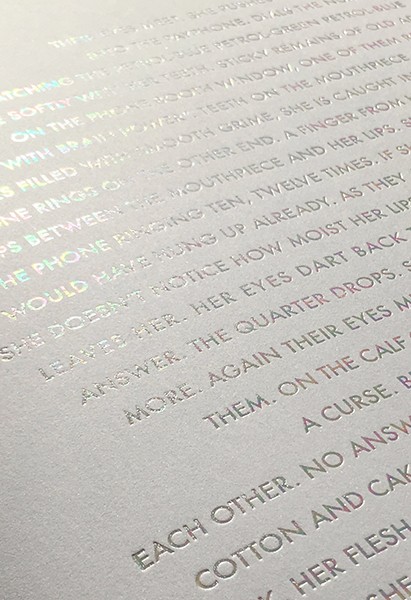 INTO THE PAYPHONE. DIALS THE
PETROL-GREEN PETROL-BLUE
SOFTLY WITH HER TEETH. STICKY REMAINS OF OLD
ON THE PHONE BOOTH WINDOW, ONE OF THEM
WITH BRAIN POWER. TEETH ON THE MOUTHPIECE
FILLED WITH SMOOTH GRIME. SHE IS CAUGHT IN
ONE RINGS ON THE OTHER END. A FINGER FROM
PS BETWEEN THE MOUTHPIECE AND HER LIPS. SH
HE PHONE RINGING TEN, TWELVE TIMES. IF SH
WOULD HAVE HUNG UP ALREADY. AS THEY
SHE DOESN'T NOTICE HOW MOIST HER LIP
LEAVES HER. HER EYES DART BACK T
ANSWER. THE QUARTER DROPS. S
MORE. AGAIN THEIR EYES M
THEM. ON THE CALF
A CURSE. B
EACH OTHER. NO ANSW
COTTON AND CAK
K. HER FLESH